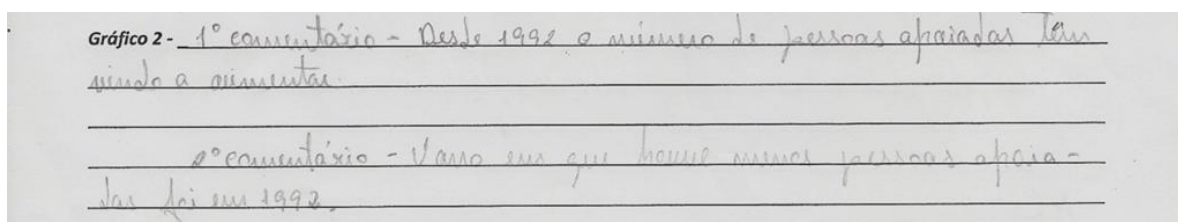 Gráfico 2 - 1º comentário - Desde 1992 o número de pessoas apoiadas têm
vindo a aumentar.
2º comentário - O ano em que houve menos pessoas apoia-
das foi em 1992.